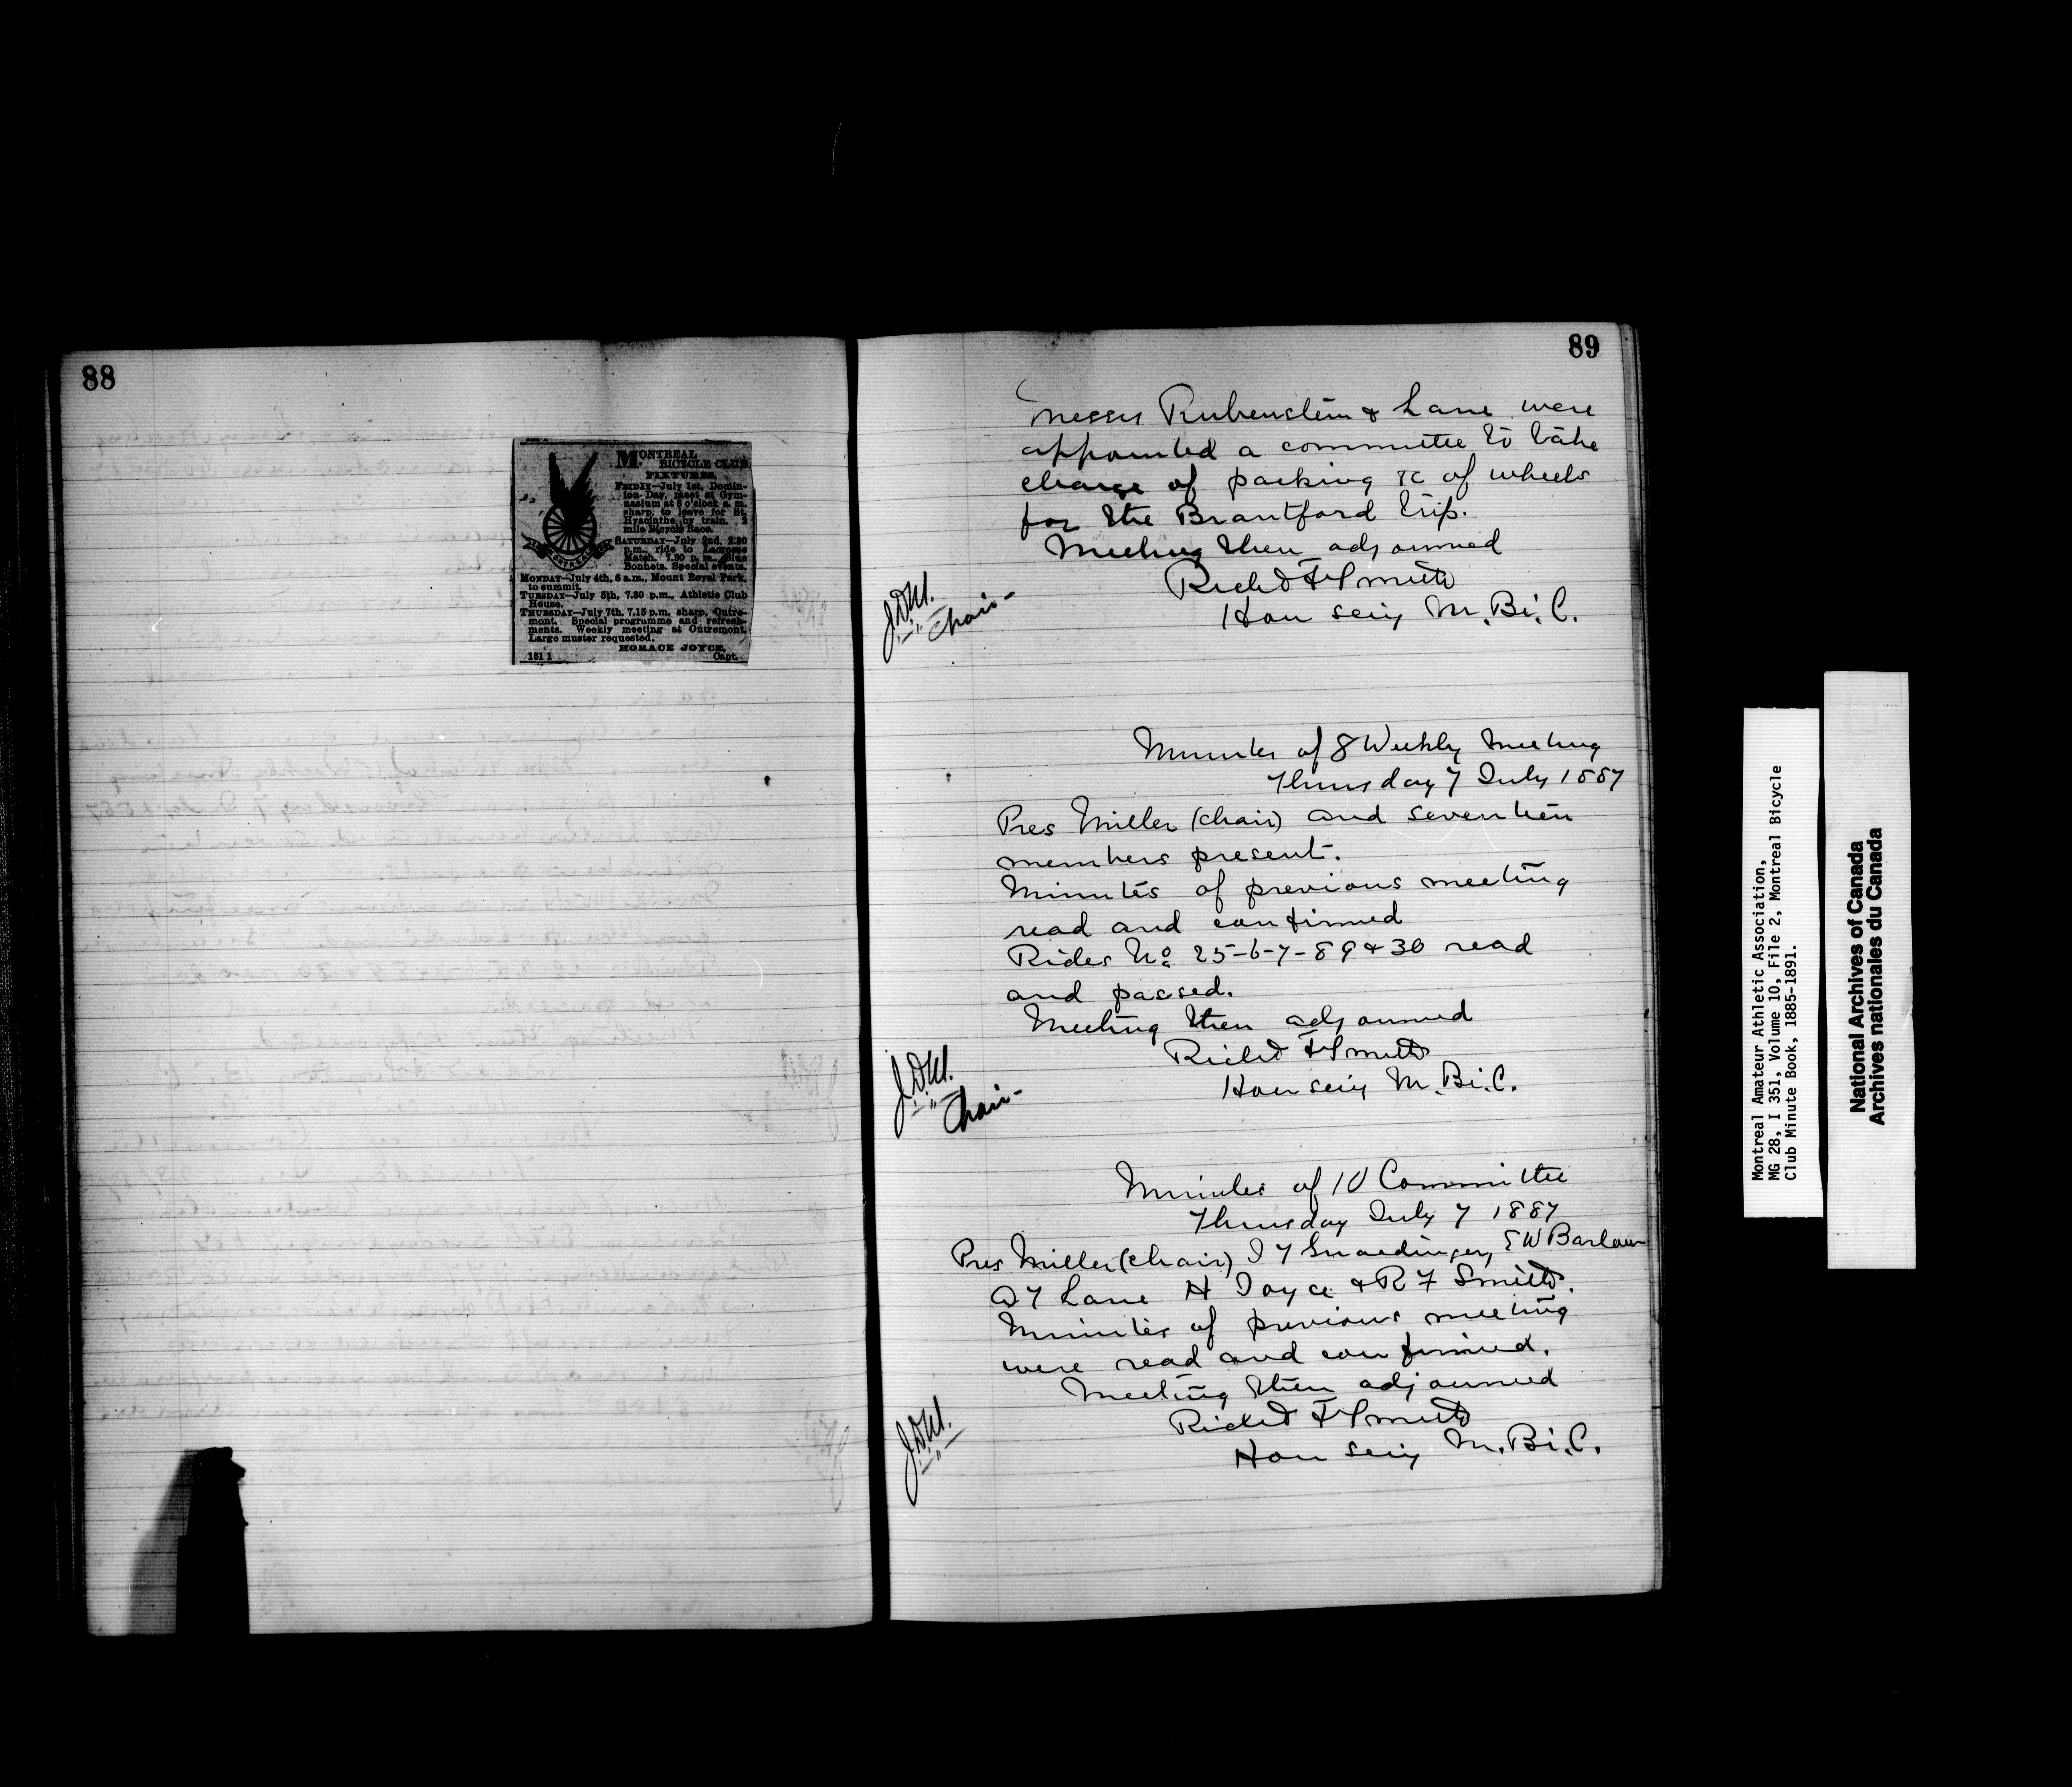 88
MONTREAL
BICYCLE CLUB
FIXTURES.
FRIDAY—July 1st, Domin-
ion Day, meet at Gym-
nasium at 8 o'clock a. m.
sharp, to leave for St.
Hyacinthe by train. 2
mile Bicycle Race.
SATURDAY—July 2nd, 2.30
p.m., ride to Lacrosse
Match. 7.30 p. m., Blue
Bonnets. Special events.
MONDAY—July 4th, 6 a.m., Mount Royal Park,
to summit.
TUESDAY—July 5th, 7.30 p.m., Athletic Club
House.
THURSDAY—July 7th, 7.15 p.m. sharp, Outre-
mont. Special programme and refresh-
ments. Weekly meeting at Outremont.
Large muster requested.
HORACE JOYCE,
151 1 Capt.
89
Messrs Rubenstein & Lane were
appointed a committee to take
charge of packing &c of wheels
for the Brantford trip.
Meeting then adjourned
Richd F Smith
Hon secy M. Bi. C.
J.D.M.
Chair-
Minutes of 8 Weekly Meeting
Thursday 7 July 1887
Pres Miller (chair) and seventeen
members present.
Minutes of previous meeting
read and confirmed
Rides No 25-6-7-89 & 30 read
and passed.
Meeting then adjourned
Richd F Smith
Hon secy M. Bi. C.
J.D.M.
Chair-
Minutes of 10 Committee
Thursday July 7 1887
Pres Miller (chair) J T Gnaedinger, E W Barlow
A T Lane H Joyce & R F Smith.
Minutes of previous meeting
were read and confirmed.
Meeting then adjourned
Richd F Smith
Hon secy M. Bi. C.
J.D.M.
Montreal Amateur Athletic Association,
MG 28, I 351, Volume 10, File 2, Montreal Bicycle
Club Minute Book, 1885-1891.
National Archives of Canada
Archives nationales du Canada